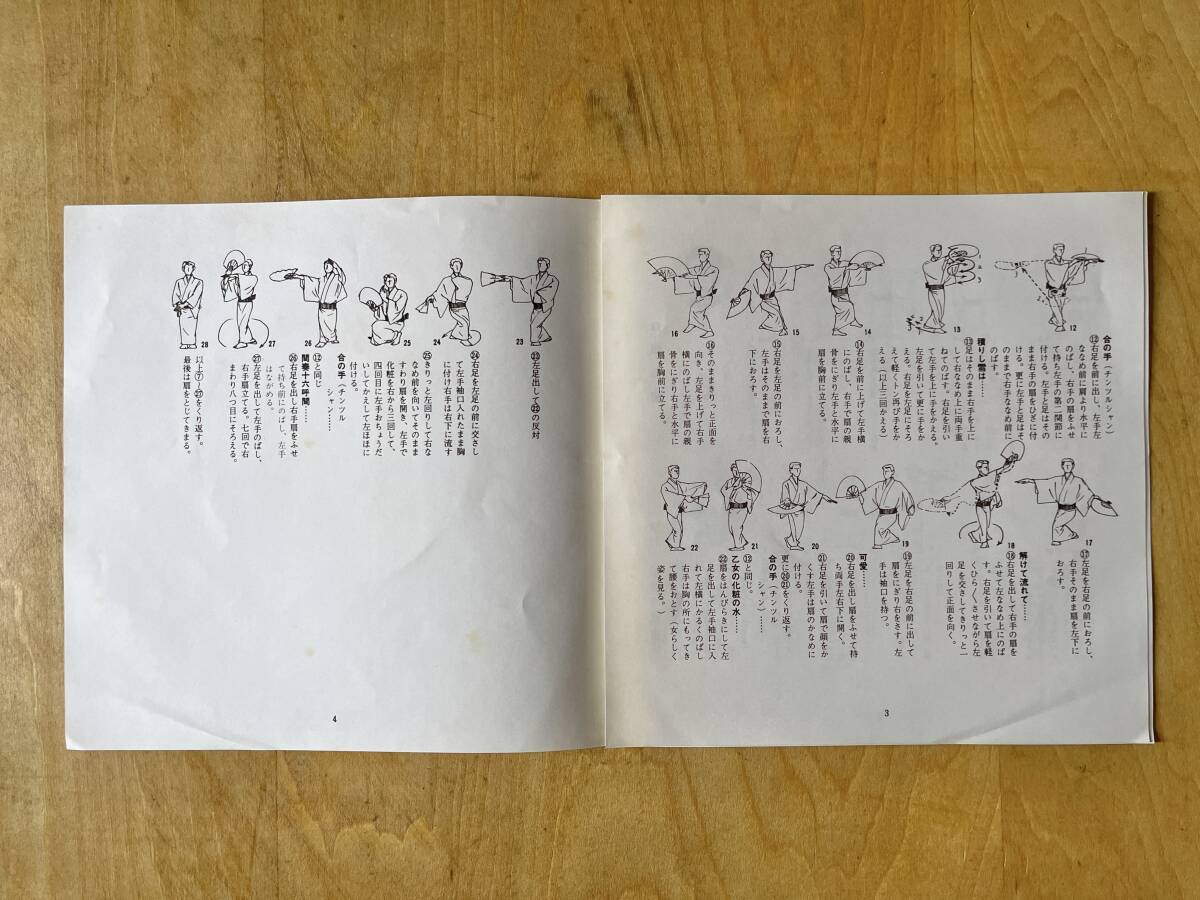 合の手（チンツルシャン）
⑫右足を前に出し、左手左
ななめ前に肩より水平に
のばし、右手の扇をふせ
て持ち左手の第二関節に
付ける。左手と足はその
まま右手の扇をひざに付
ける。更に左手と足はそ
のままで右手ななめ前に
のばす。
積りし雪は……
⑬足はそのまま右手を上に
して右ななめ上に両手重
ねてのばす。右足を引い
て左手を上に手をかえる。
左足を引いて更に手をか
える。右足を左足にそろ
えて軽くトン再び手をか
える（以上三回かえる）
⑭右足を前に上げて左手横
にのばし、右手で扇の親
骨をにぎり左手と水平に
扇を胸前に立てる。
⑮右足を左足の前におろし、
左手はそのままで扇を右
下におろす。
⑯そのままきりっと正面を
向き、左足を上げて右手
横にのばし左手で扇の親
骨をにぎり右手と水平に
扇を胸前に立てる。
12
13
14
15
16
⑰左足を右足の前におろし、
右手そのまま扇を左下に
おろす。
解けて流れて……
⑱右足を出して右手の扇を
ふせて左ななめ上にのば
す。右足を引いて扇を軽
くひら〱させながら左
足を交さしてきりっと一
回りして正面を向く。
⑲左足を右足の前に出して
扇をにぎり右をさす。左
手は袖口を持つ。
可愛……
⑳右足を出し扇をふせて持
ち両手左右下に開く。
㉑右足を引いて扇で顔をか
くす左手は扇のかなめに
付ける。
更に⑳㉑をくり返す。
合の手（チンツル
シャン）……
⑫と同じ。
乙女の化粧の水……
㉒扇をはんびらきにして左
足を出して左手袖口に入
れて左横にかるくのばし
右手は胸の所にもってき
て腰をおとす（女らしく
姿を見る。）
17
18
19
20
21
22
3
㉓左足出して㉒の反対
㉔右足を左足の前に交さし
て左手袖口入れたまま胸
に付け右手は右下に流す
㉕きりっと左回りして右な
なめ前を向いてそのまま
すわり扇を開き、左手で
化粧を右から三回して、
四回目に左手おちょうだ
いしてかえして左ほほに
付ける。
合の手（チンツル
シャン……
⑫と同じ
間奏十六呼間……
㉖右足を出し右手扇をふせ
て持ち前にのばし、左手
はながめる。
㉗左足を出して左手のばし、
右手扇立てる。七回で右
まわり八つ目にそろえる。
以上⑦〜㉗をくり返す。
最後は扇をとじてきまる。
23
24
25
26
27
28
4